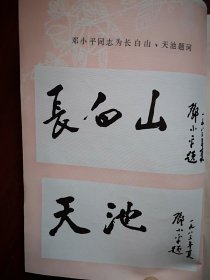 邓小平同志为长白山、天池题词
長白山
一九八三年夏
鄧小平題
天池
一九八三年夏
鄧小平題